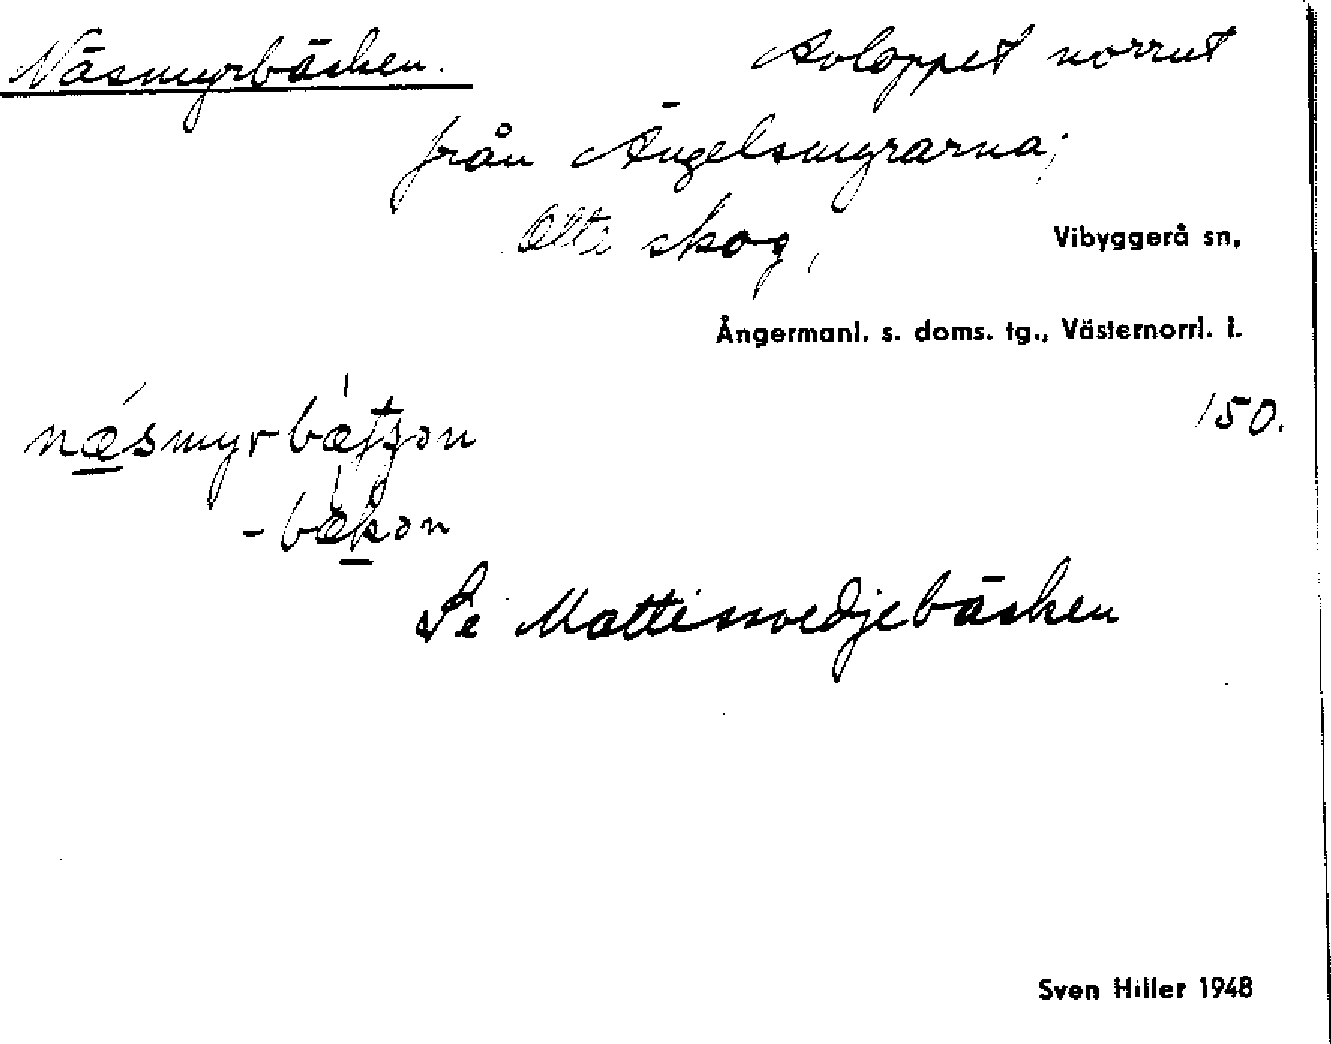 Näsmyrbäcken. Avloppet norrut
från Ängelsmyrarna;
Älte skog, Vibyggerå sn,
Ångermanl. s. doms. tg., Västernorrl. l.
150.
Se Mattissvedjebäcken
Sven Hiller 1948